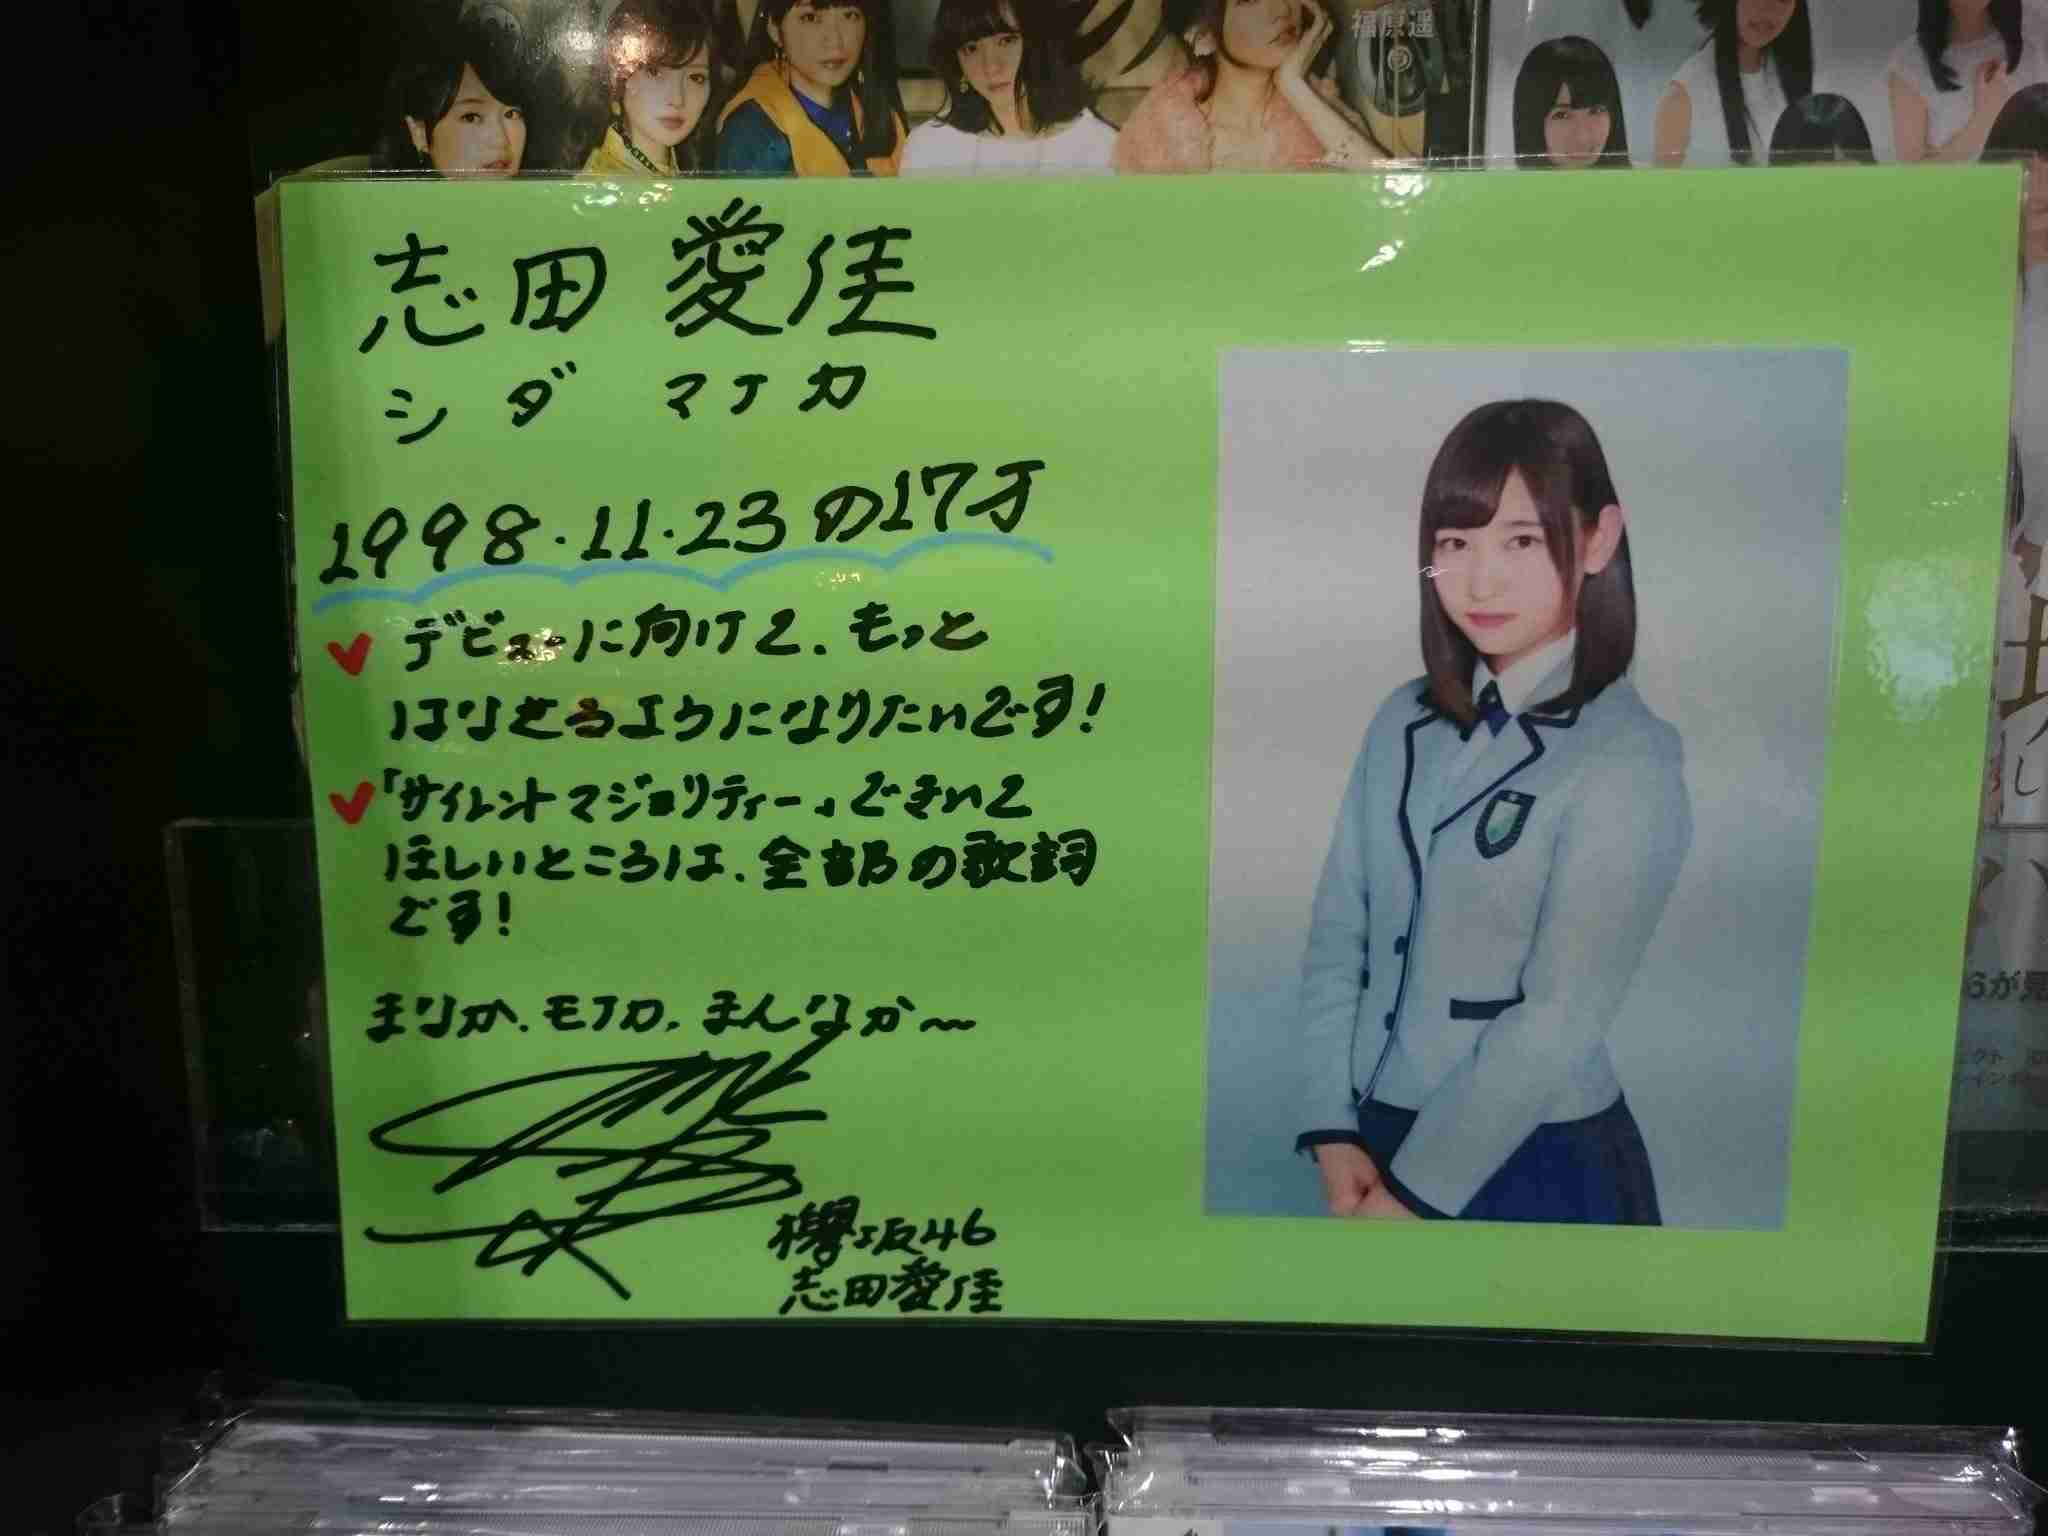 福原遥
志田 愛佳
シダ マナカ
1998.11.23の17才
デビューに向けて、もっと
はなせるようになりたいです!
「サイレントマジョリティー」できいて
ほしいところは、全部の歌詞
です!
まなか、モナカ、まんなか〜
欅坂46
志田愛佳
6が見